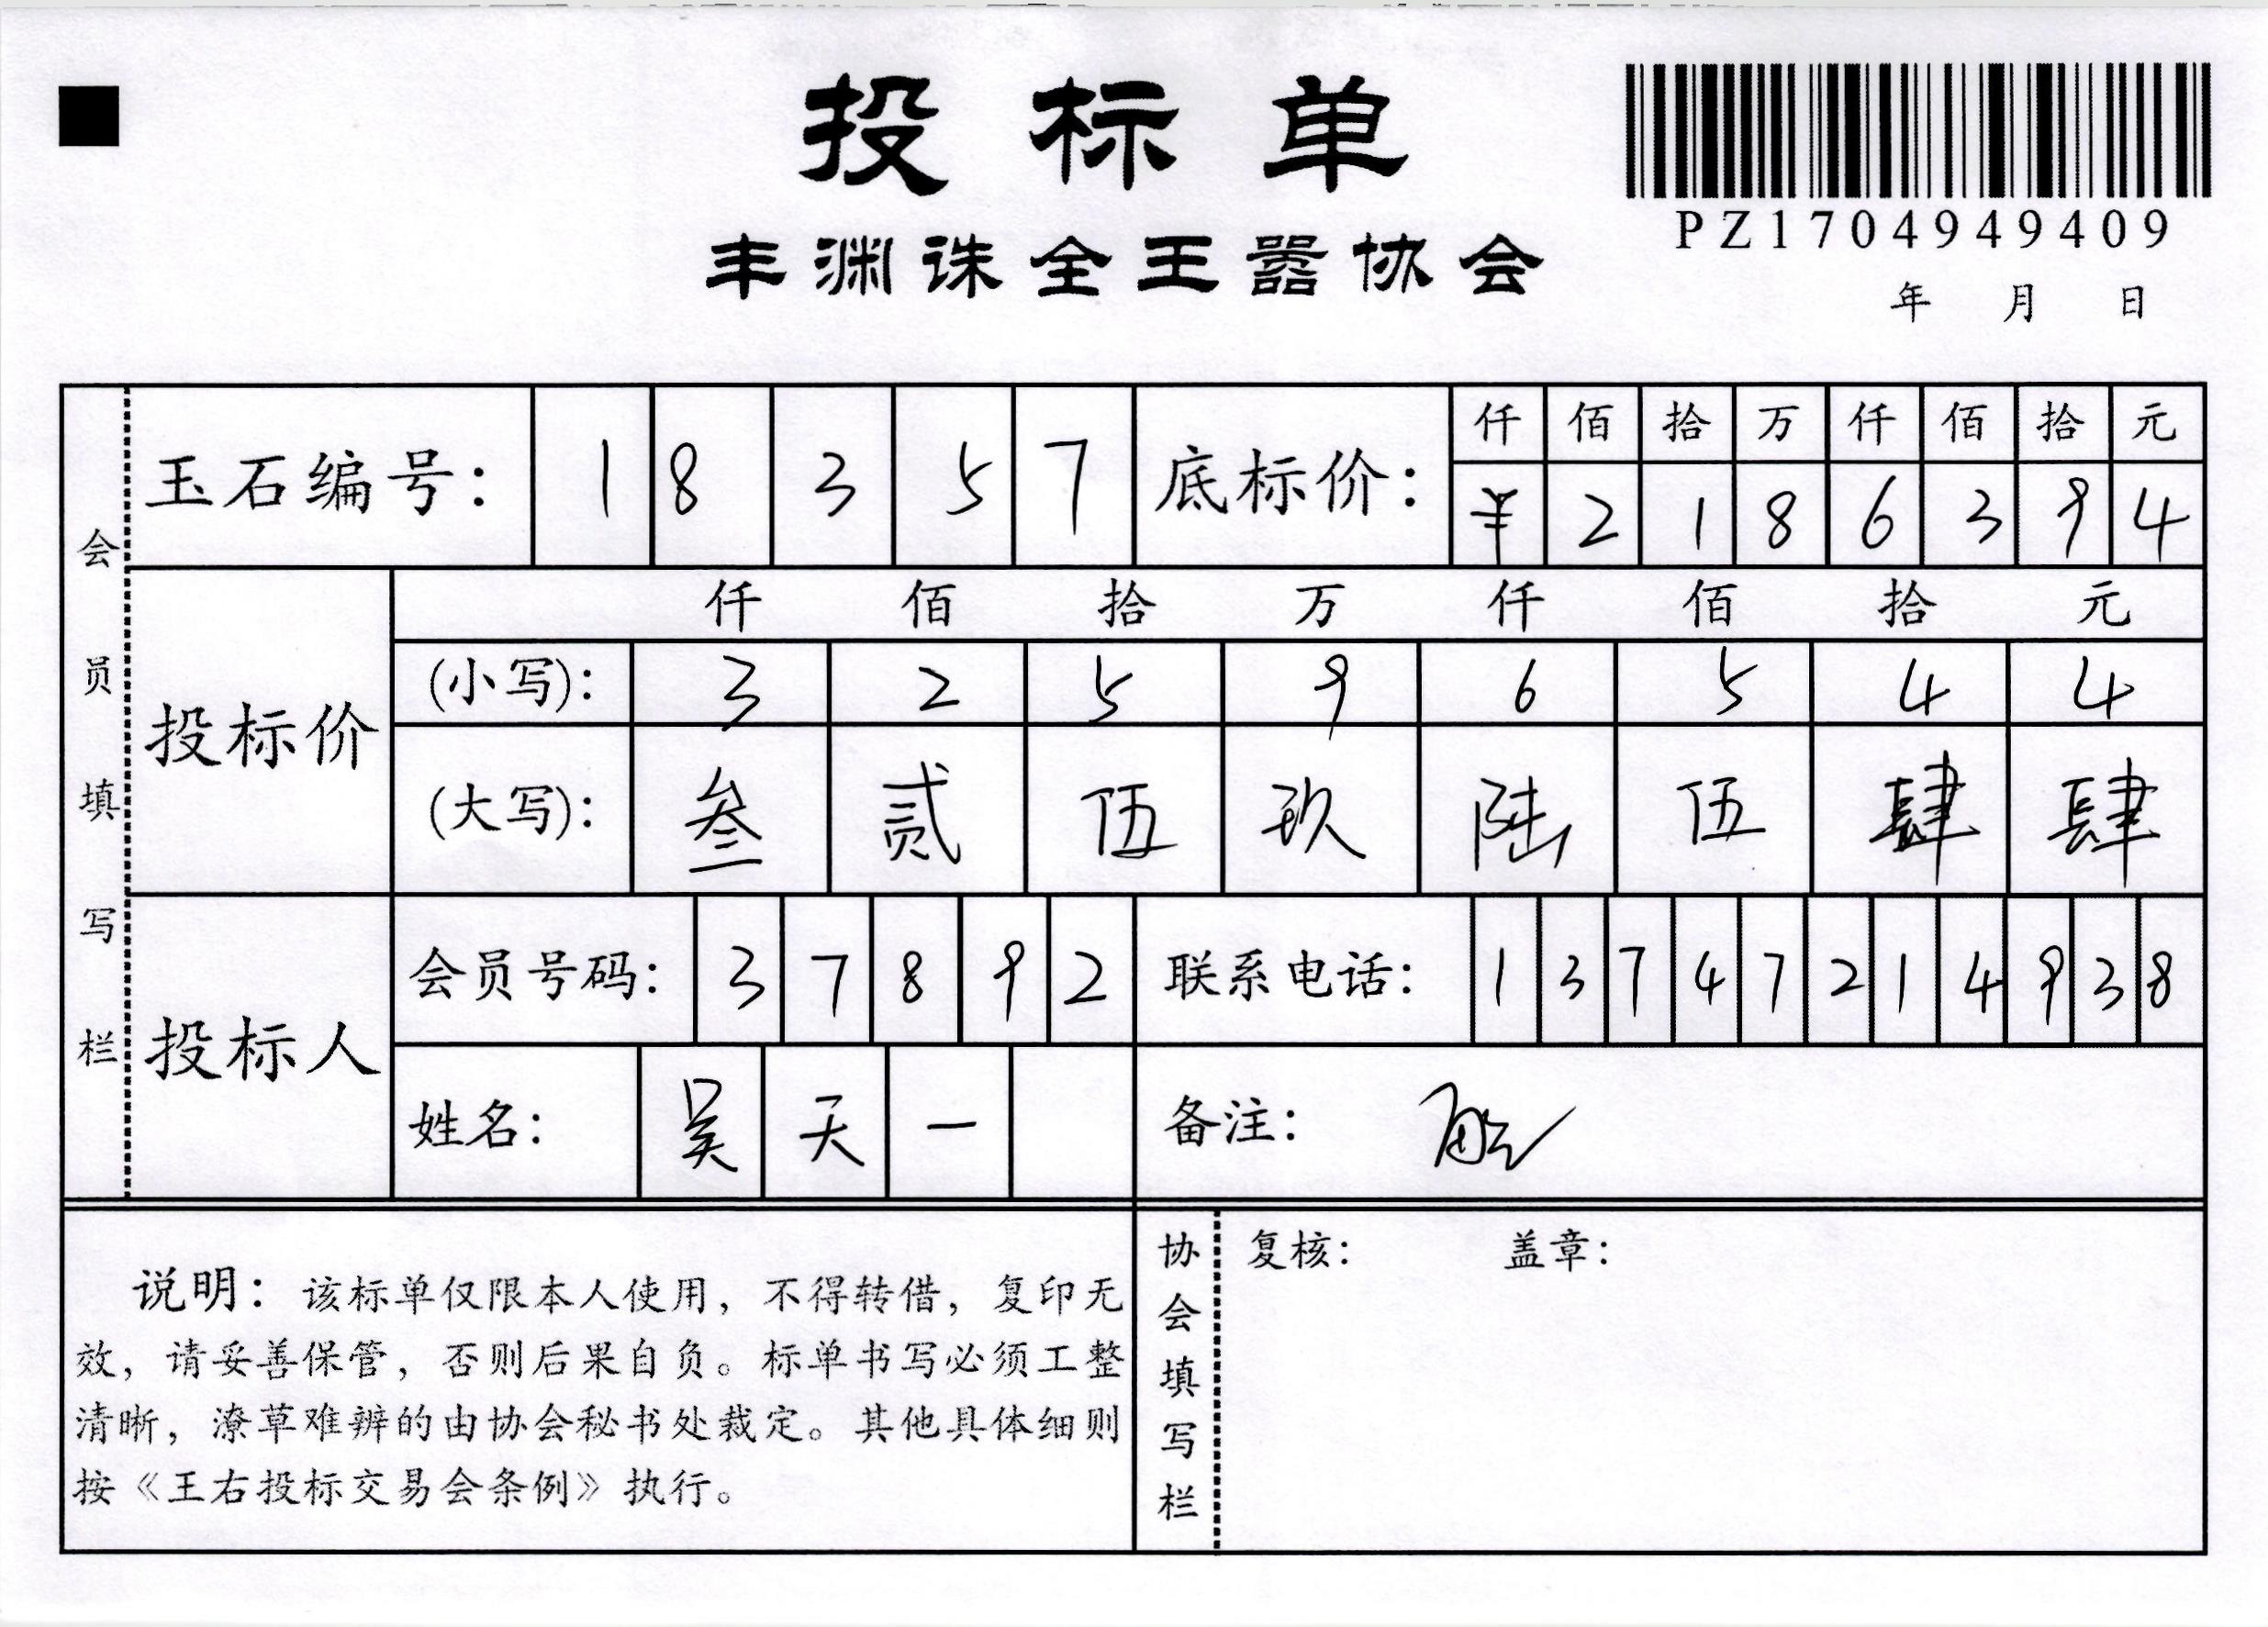 投标单
丰渊诛全王嚣协会
PZ1704949409
年 月 日
会员填写栏
玉石编号: 1 8 3 5 7
底标价: 仟 佰 拾 万 仟 佰 拾 元
¥ 2 1 8 6 3 9 4
投标价
仟 佰 拾 万 仟 佰 拾 元
(小写): 3 2 5 9 6 5 4 4
(大写): 叁 贰 伍 玖 陆 伍 肆 肆
投标人
会员号码: 3 7 8 9 2
联系电话: 1 3 7 4 7 2 1 4 9 3 8
姓名: 吴 天 一
备注:
说明：该标单仅限本人使用，不得转借，复印无
效，请妥善保管，否则后果自负。标单书写必须工整
清晰，潦草难辨的由协会秘书处裁定。其他具体细则
按《王右投标交易会条例》执行。
协会填写栏
复核: 盖章: